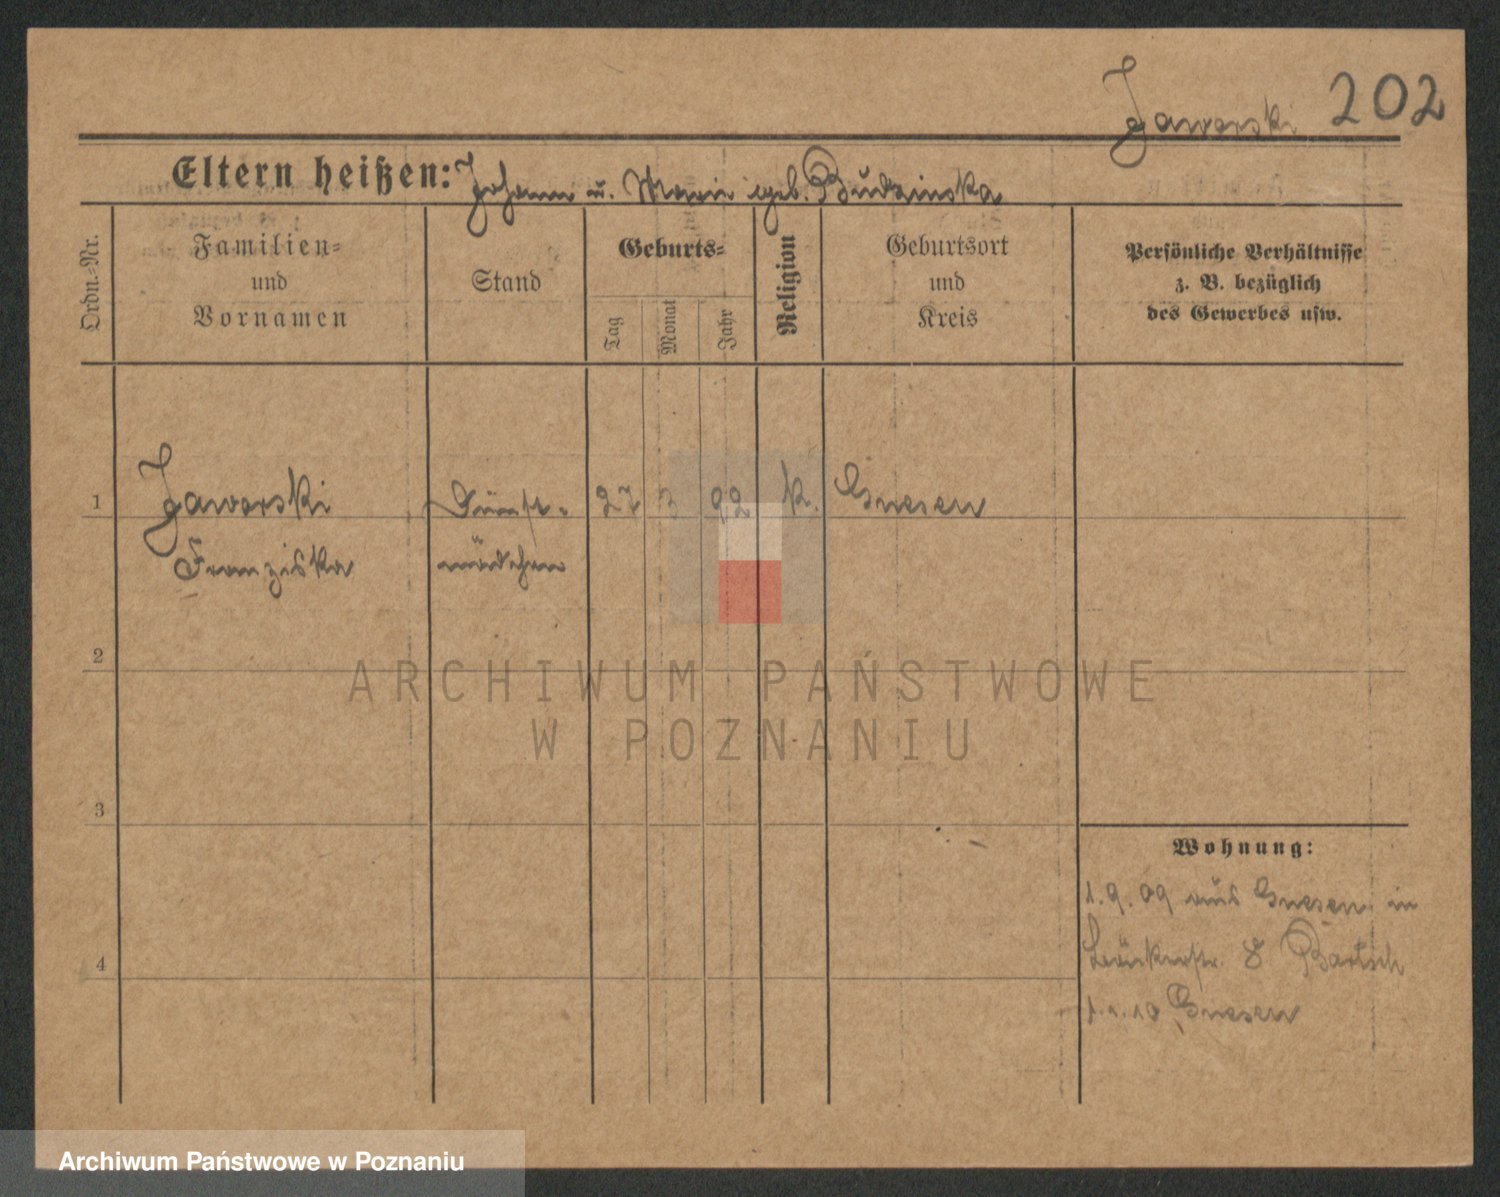 Jaworski 202
Eltern heißen: Johann u. Marie geb. Budzinska
Ordn.-Nr.
Familien-
und
Vornamen
Stand
Geburts-
Tag
Monat
Jahr
Religion
Geburtsort
und
Kreis
Persönliche Verhältnisse
z. B. bezüglich
des Gewerbes usw.
1 Jaworski Dienst- 27 3 92 k. Gnesen
Franziska mädchen
2
ARCHIWUM PAŃSTWOWE
W POZNANIU
3
Wohnung:
1.9.09 aus Gnesen in
4
8 Bartsch
1.1.10 Gnesen
Archiwum Państwowe w Poznaniu